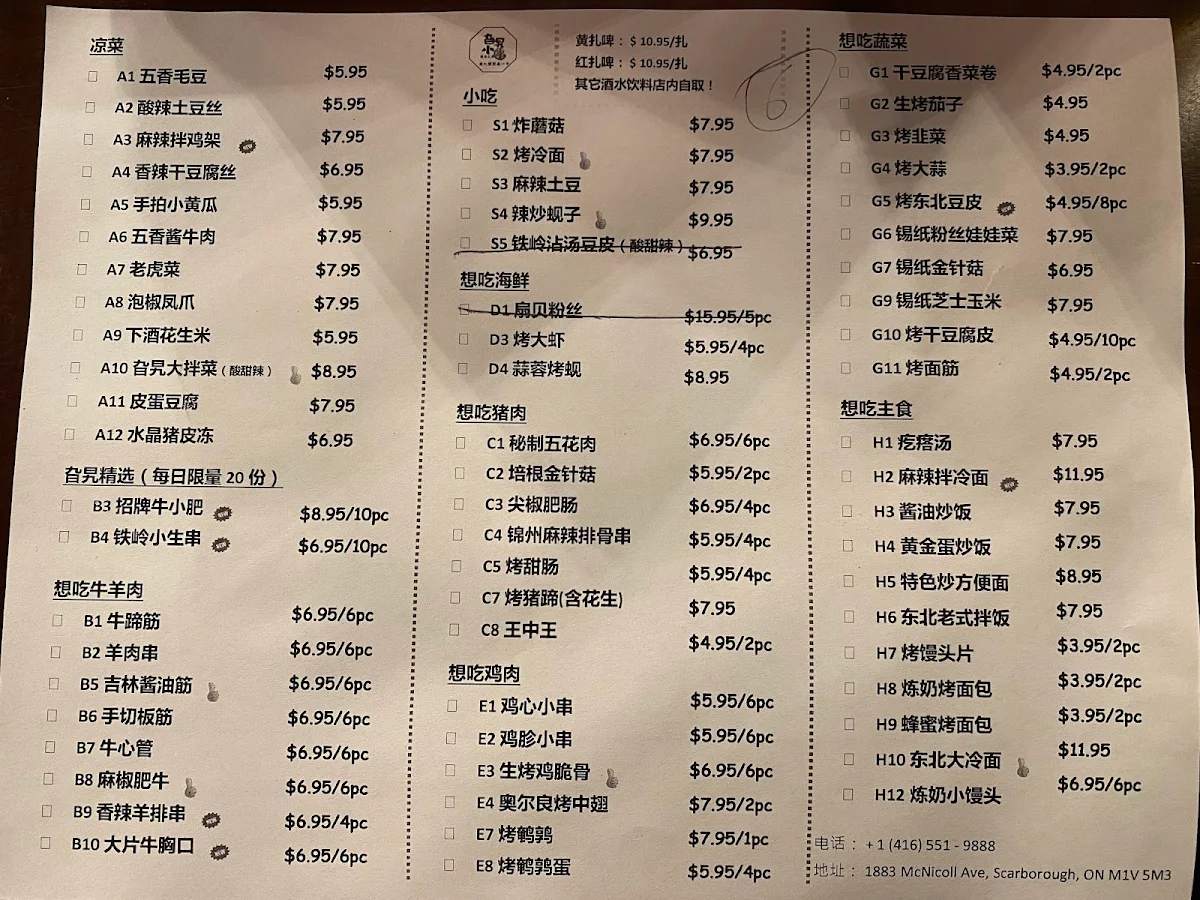 凉菜
A1 五香毛豆 $5.95
A2 酸辣土豆丝 $5.95
A3 麻辣拌鸡架 $7.95
A4 香辣干豆腐丝 $6.95
A5 手拍小黄瓜 $5.95
A6 五香酱牛肉 $7.95
A7 老虎菜 $7.95
A8 泡椒凤爪 $7.95
A9 下酒花生米 $5.95
A10 旮旯大拌菜（酸甜辣） $8.95
A11 皮蛋豆腐 $7.95
A12 水晶猪皮冻 $6.95
旮旯精选（每日限量 20 份）
B3 招牌牛小肥 $8.95/10pc
B4 铁岭小生串 $6.95/10pc
想吃牛羊肉
B1 牛蹄筋 $6.95/6pc
B2 羊肉串 $6.95/6pc
B5 吉林酱油筋 $6.95/6pc
B6 手切板筋 $6.95/6pc
B7 牛心管 $6.95/6pc
B8 麻椒肥牛 $6.95/6pc
B9 香辣羊排串 $6.95/4pc
B10 大片牛胸口 $6.95/6pc
黄扎啤：$ 10.95/扎
红扎啤：$ 10.95/扎
其它酒水饮料店内自取！
6
小吃
S1 炸蘑菇 $7.95
S2 烤冷面 $7.95
S3 麻辣土豆 $7.95
S4 辣炒蚬子 $9.95
S5 铁岭沾汤豆皮（酸甜辣） $6.95
想吃海鲜
D1 扇贝粉丝 $15.95/5pc
D3 烤大虾 $5.95/4pc
D4 蒜蓉烤蚬 $8.95
想吃猪肉
C1 秘制五花肉 $6.95/6pc
C2 培根金针菇 $5.95/2pc
C3 尖椒肥肠 $6.95/4pc
C4 锦州麻辣排骨串 $5.95/4pc
C5 烤甜肠 $5.95/4pc
C7 烤猪蹄(含花生) $7.95
C8 王中王 $4.95/2pc
想吃鸡肉
E1 鸡心小串 $5.95/6pc
E2 鸡胗小串 $5.95/6pc
E3 生烤鸡脆骨 $6.95/6pc
E4 奥尔良烤中翅 $7.95/2pc
E7 烤鹌鹑 $7.95/1pc
E8 烤鹌鹑蛋 $5.95/4pc
想吃蔬菜
G1 干豆腐香菜卷 $4.95/2pc
G2 生烤茄子 $4.95
G3 烤韭菜 $4.95
G4 烤大蒜 $3.95/2pc
G5 烤东北豆皮 $4.95/8pc
G6 锡纸粉丝娃娃菜 $7.95
G7 锡纸金针菇 $6.95
G9 锡纸芝士玉米 $7.95
G10 烤干豆腐皮 $4.95/10pc
G11 烤面筋 $4.95/2pc
想吃主食
H1 疙瘩汤 $7.95
H2 麻辣拌冷面 $11.95
H3 酱油炒饭 $7.95
H4 黄金蛋炒饭 $7.95
H5 特色炒方便面 $8.95
H6 东北老式拌饭 $7.95
H7 烤馒头片 $3.95/2pc
H8 炼奶烤面包 $3.95/2pc
H9 蜂蜜烤面包 $3.95/2pc
H10 东北大冷面 $11.95
H12 炼奶小馒头 $6.95/6pc
电话： + 1 (416) 551 - 9888
地址： 1883 McNicoll Ave, Scarborough, ON M1V 5M3